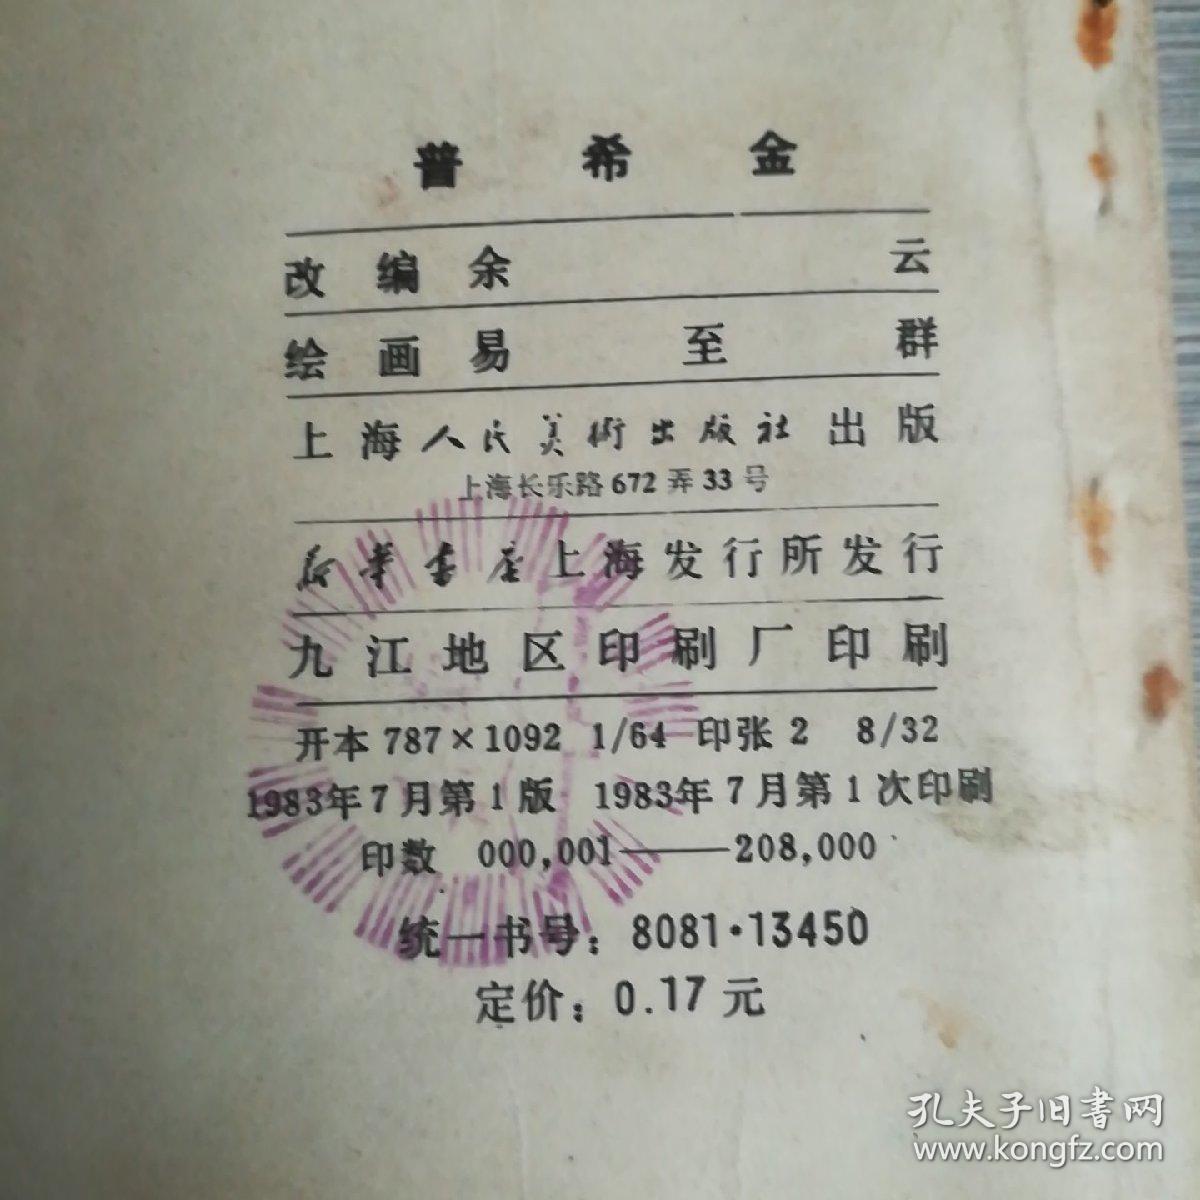 普希金
改编余云
绘画易至群
上海人民美術出版社出版
上海长乐路672弄33号
新华书店上海发行所发行
九江地区印刷厂印刷
开本 787×1092 1/64 印张 2 8/32
1983年7月第1版 1983年7月第1次印刷
印数 000,001——208,000
统一书号：8081·13450
定价：0.17元
孔夫子旧書网
www.kongfz.com